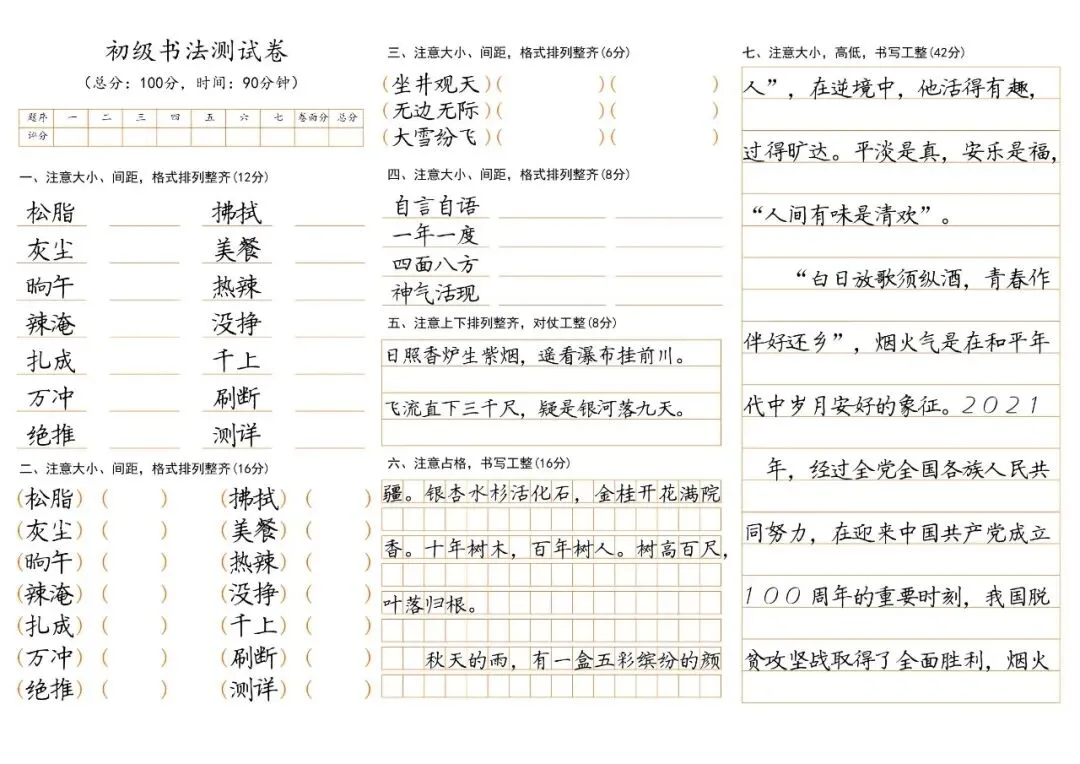 初级书法测试卷
（总分：100分，时间：90分钟）
题序 一 二 三 四 五 六 七 卷面分 总分
评分
一、注意大小、间距，格式排列整齐(12分)
松脂 拂拭
灰尘 美餐
晌午 热辣
辣淹 没挣
扎成 千上
万冲 刷断
绝推 测详
二、注意大小、间距，格式排列整齐(16分)
(松脂) ( ) (拂拭) ( )
(灰尘) ( ) (美餐) ( )
(晌午) ( ) (热辣) ( )
(辣淹) ( ) (没挣) ( )
(扎成) ( ) (千上) ( )
(万冲) ( ) (刷断) ( )
(绝推) ( ) (测详) ( )
三、注意大小、间距，格式排列整齐(6分)
(坐井观天) ( ) ( )
(无边无际) ( ) ( )
(大雪纷飞) ( ) ( )
四、注意大小、间距，格式排列整齐(8分)
自言自语
一年一度
四面八方
神气活现
五、注意上下排列整齐，对仗工整(8分)
日照香炉生紫烟，遥看瀑布挂前川。
飞流直下三千尺，疑是银河落九天。
六、注意占格，书写工整(16分)
疆。银杏水杉活化石，金桂开花满院
香。十年树木，百年树人。树高百尺，
叶落归根。
秋天的雨，有一盒五彩缤纷的颜
七、注意大小，高低，书写工整(42分)
人”，在逆境中，他活得有趣，
过得旷达。平淡是真，安乐是福，
“人间有味是清欢”。
“白日放歌须纵酒，青春作
伴好还乡”，烟火气是在和平年
代中岁月安好的象征。2021
年，经过全党全国各族人民共
同努力，在迎来中国共产党成立
100周年的重要时刻，我国脱
贫攻坚战取得了全面胜利，烟火